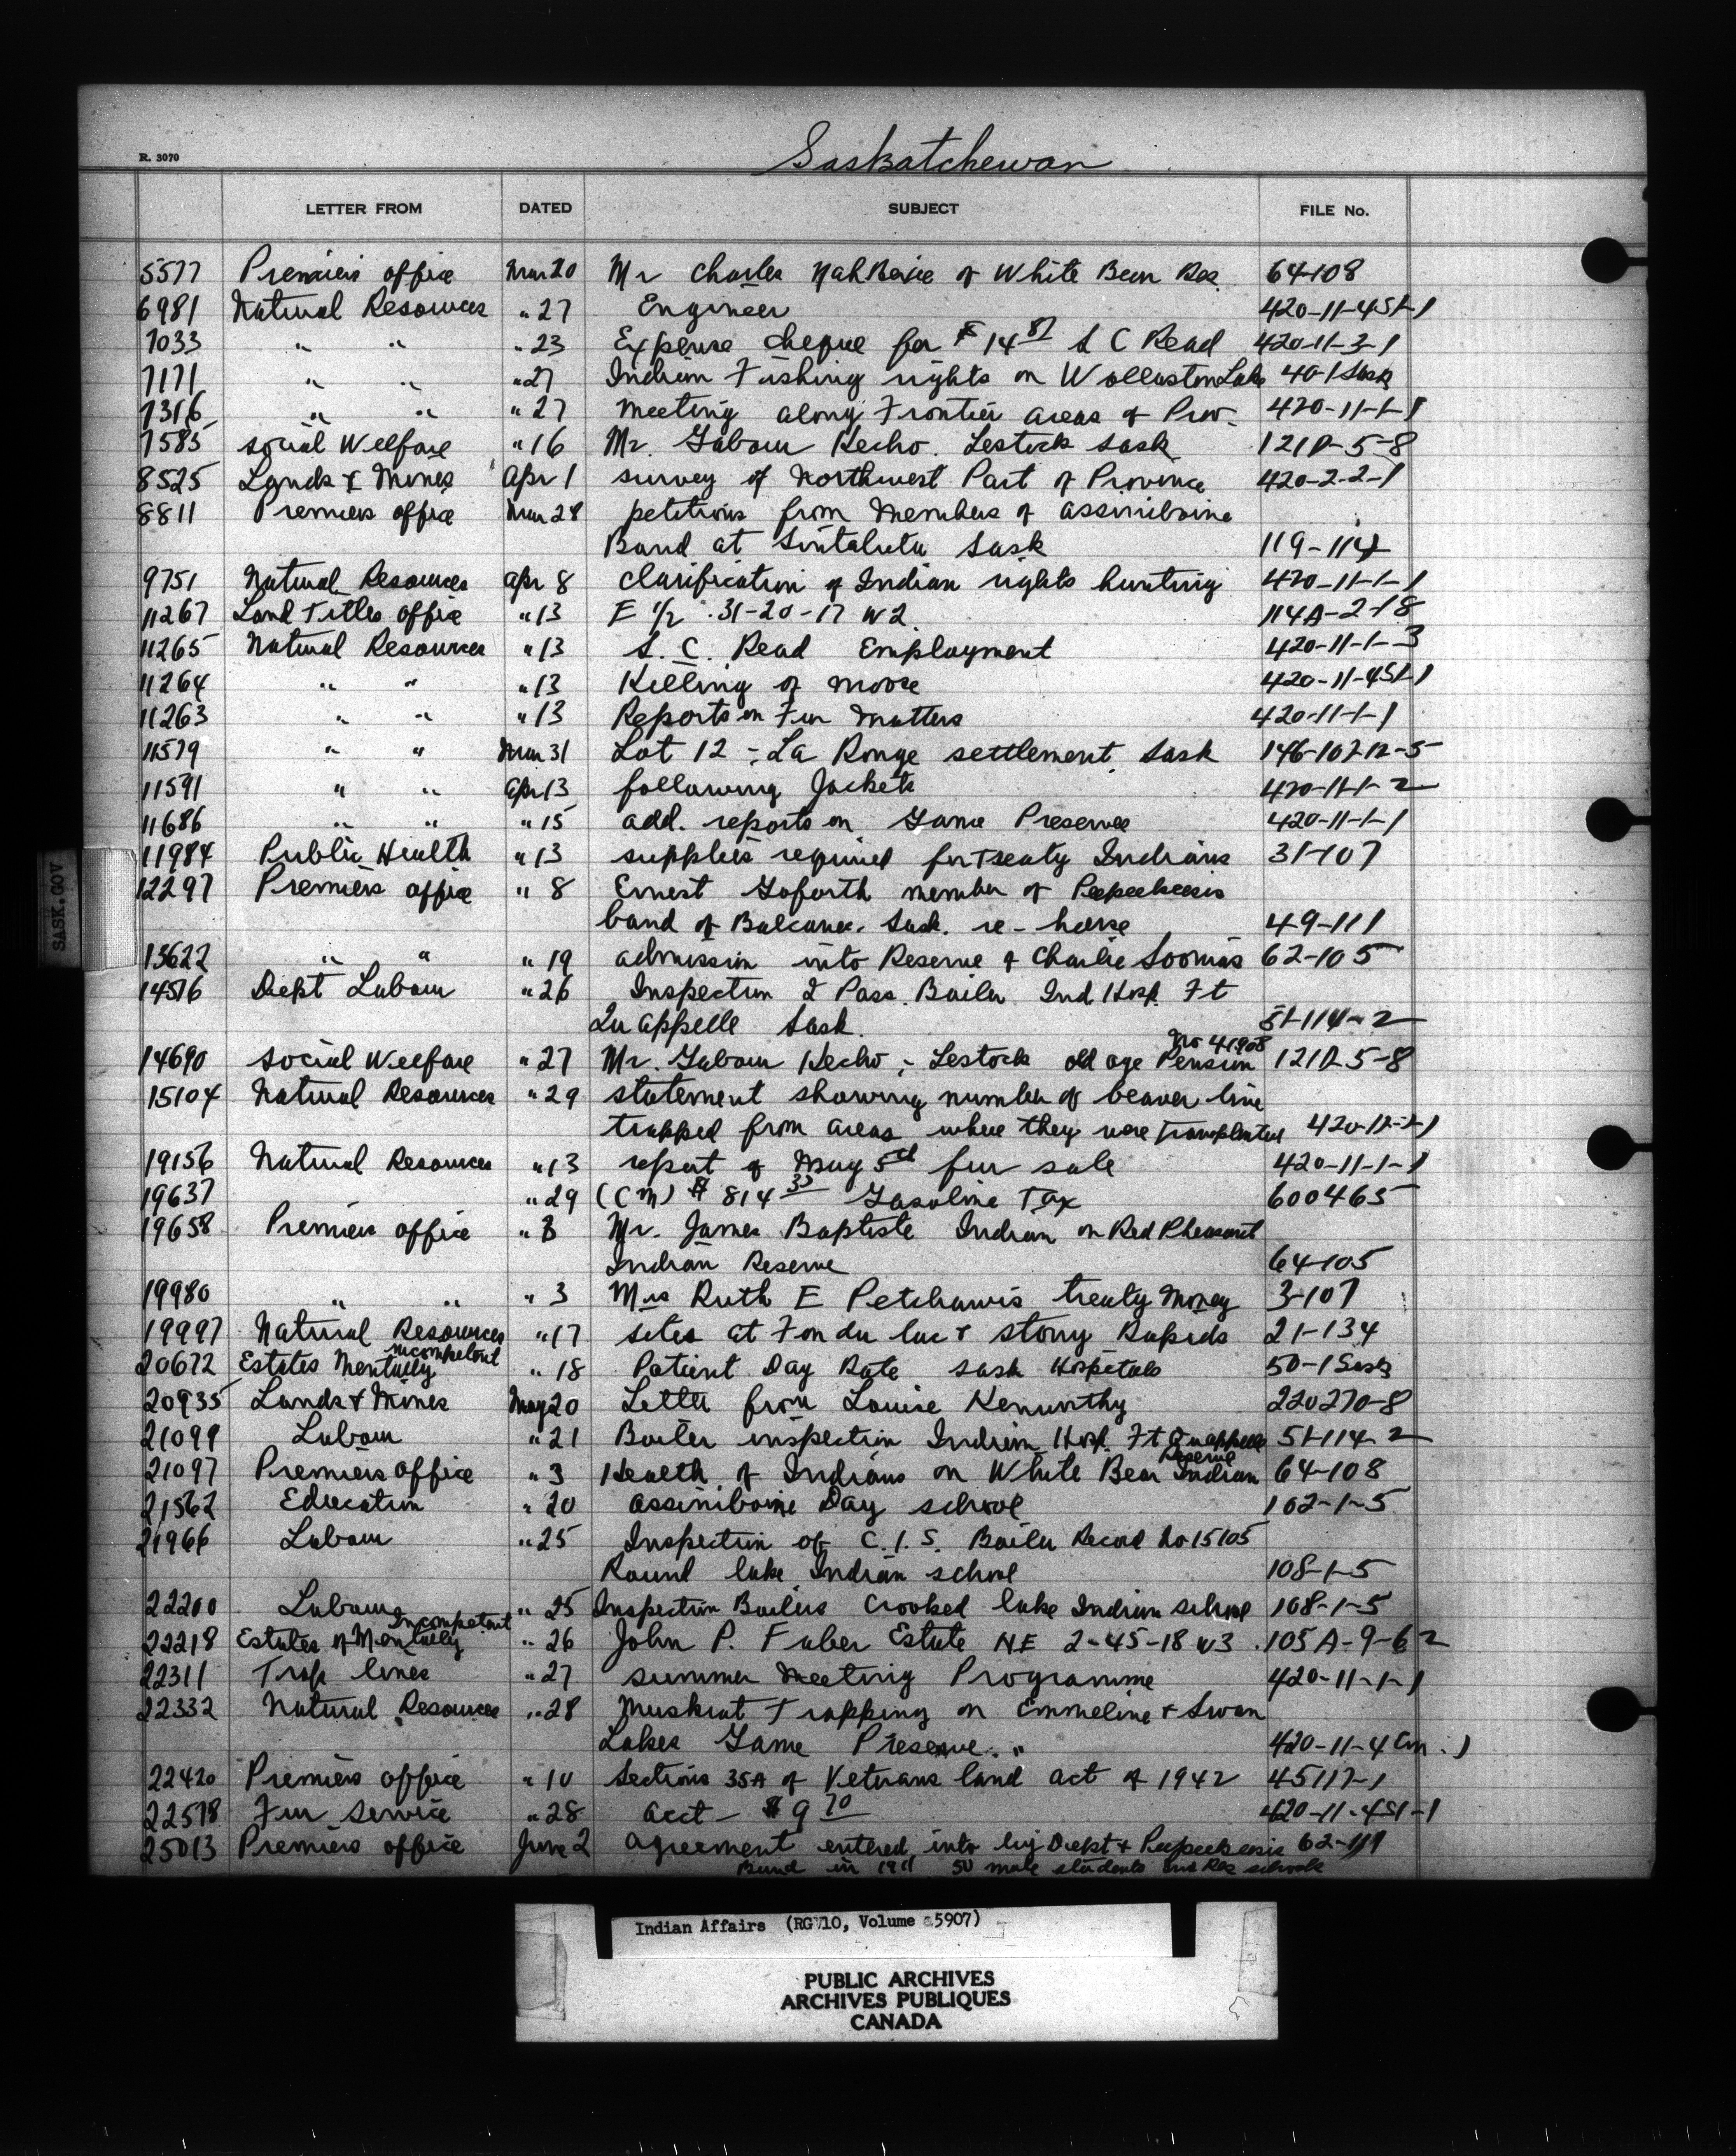 Saskatchewan
R. 3070
LETTER FROM DATED SUBJECT FILE No.
5577 Premiers office Mar 20 Mr Charles of White Bear Res 64-108
6981 Natural Resources " 27 Engineer 420-11-4S1-1
7033 " " " 23 Expense cheque for $14 87 S C Read 420-11-3-1
7171 " " " 27 Indian Fishing rights on Wollaston Lake 40-1 Sask
7316 " " " 27 meeting along Frontier areas of Prov. 420-11-1-1
7585 Social Welfare " 16 Mr. Gabour Kecho. Lestock Sask 121D-5-8
8525 Lands & Mines Apr 1 survey of Northwest Part of Province 420-2-2-1
8811 Premiers office Mar 28 petitions from members of assiniboine
Band at Sintaluta Sask 119-114
9751 Natural Resources Apr 8 clarification of Indian rights hunting 420-11-1-1
11267 Land Titles office " 13 E 1/2 . 31-20-17 W2. 114A-2-18
11265 Natural Resources " 13 S. C. Read Employment 420-11-1-3
11264 " " " 13 Killing of moose 420-11-4S1-1
11263 " " " 13 Reports on Fur Matters 420-11-1-1
11579 " " Mar 31 Lot 12 - La Ronge settlement Sask 146-107-12-5
11591 " " Apr 13 following Jackets 420-11-1-2
11686 " " " 15 add. reports on Game Preserve 420-11-1-1
11984 Public Health " 13 supplies required for treaty Indians 31-107
12297 Premiers office " 8 Ernest Goforth member of Peepeekeesis
band of Balcarres. Sask. re - house 49-111
13622 " " " 19 admission into Reserve of Charlie Soomias 62-105
14516 Dept Labour " 26 Inspection 2 Pass. Boiler Ind Hosp. Ft
Qu appelle Sask. 51-114-2
14690 Social Welfare " 27 Mr. Gabour Kecho - Lestock old age Pension No 41908 121D-5-8
15104 Natural Resources " 29 statement showing number of beaver live
trapped from areas where they were transplanted 420-11-2-1
19156 Natural Resources " 13 report of May 5th fur sale 420-11-1-1
19637 " 29 (CM) $ 814 33 Gasoline Tax 600465
19658 Premiers office " 3 Mr. James Baptiste Indian on Red Pheasant
Indian Reserve 64-105
19980 " " " 3 Mrs Ruth E Petchawis treaty money 3-107
19997 Natural Resources " 17 sites at Fon du lac & stony Rapids 21-134
20672 Estates Mentally incompetent " 18 Patient Day Rate Sask Hospitals 50-1 Sask
20935 Lands & Mines May 20 Letter from Louise Kenworthy 220270-8
21099 Labour " 21 Boiler inspection Indian Hosp. Ft Quappelle 51-114-2
21097 Premiers office " 3 Health of Indians on White Bear Indian Reserve 64-108
21562 Education " 20 assiniboine Day school 102-1-5
21966 Labour " 25 Inspection of C.I.S. Boiler Record No 15105
Round lake Indian school 108-1-5
22200 Labour " 25 Inspection Boilers Crooked lake Indian school 108-1-5
22218 Estates of Mentally Incompetent " 26 John P. Fuber Estate NE 2-45-18 W3 105A-9-62
22311 Trap lines " 27 summer Meeting Programme 420-11-1-1
22332 Natural Resources " 28 Muskrat Trapping on Emmeline & Swan
Lakes Game Preserve. " 420-11-4 Cm. 1
22420 Premiers office " 10 Sections 35A of Veterans land act of 1942 45117-1
22578 Fur Service " 28 acct - $9 70 420-11-4S1-1
25013 Premiers office June 2 agreement entered into by Dept & Peepeekeesis 62-111
Band in 1911 50 male students Ind Res schools
SASK.GOV
Indian Affairs (RG 10, Volume 5907)
PUBLIC ARCHIVES
ARCHIVES PUBLIQUES
CANADA